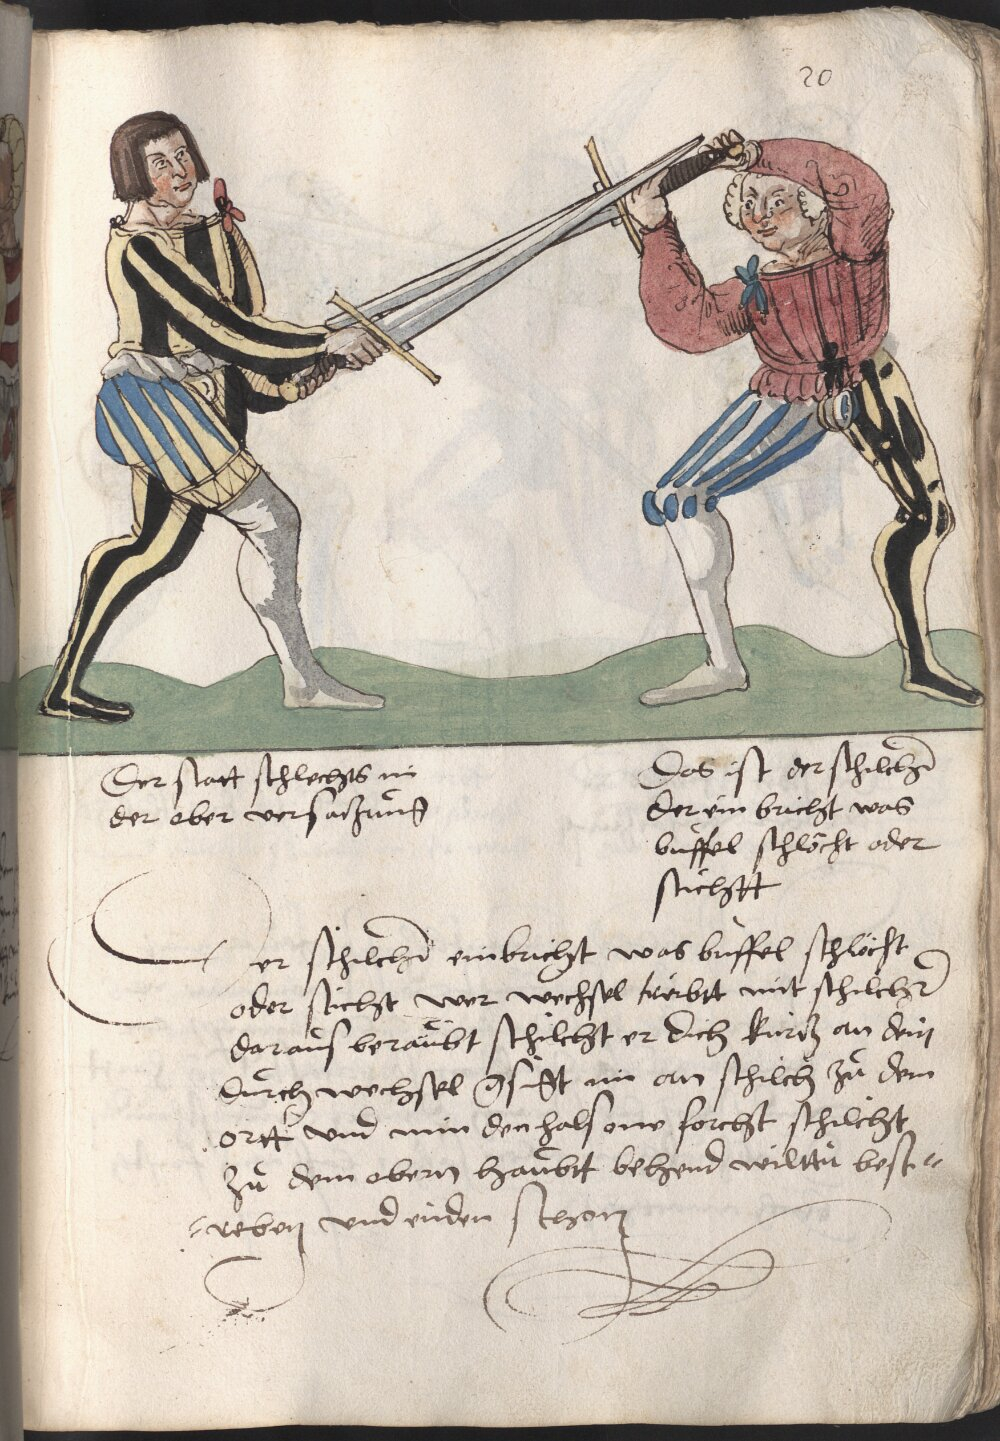 20
Der statt schlechts in
der ober versatzung
Das ist der schilcher
der ein bricht was
büffel schlöcht oder
sticht
er schilcher einbricht was büffel schlöcht
oder sticht wer wechsel treibtt mit schilcher
daraus beraübt schilcht er dich kürtz an dein
dürch wechsel gsigt im an schilch zü dem
ortt und nim den hals one forcht schilcht
zü dem obern haübtt behend wilttü best
reben und enden schon